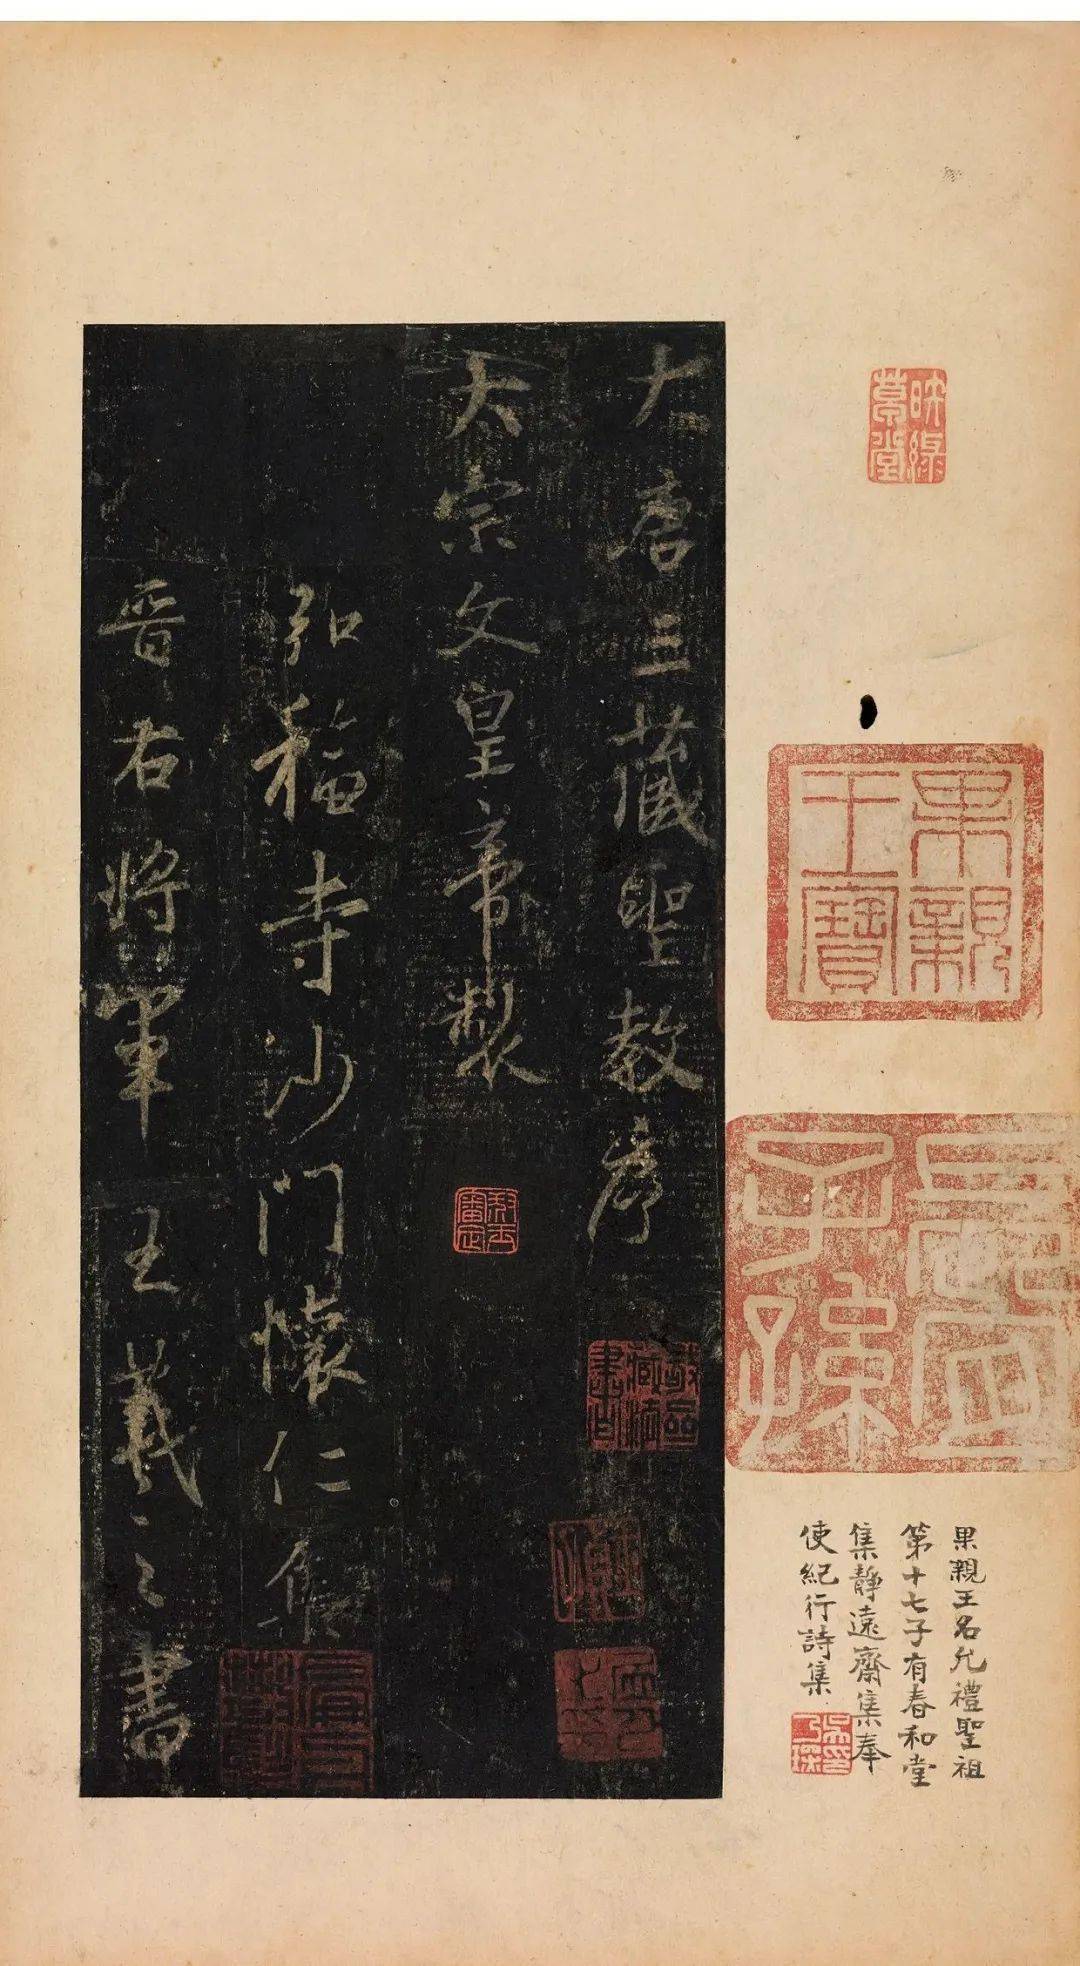 映綠草堂
果親王寶
長宜子孫
果親王名允禮聖祖
第十七子有春和堂
集靜遠齋集奉
使紀行詩集
大唐三藏聖教序
太宗文皇帝製
弘福寺沙門懷仁集
晉右將軍王羲之書